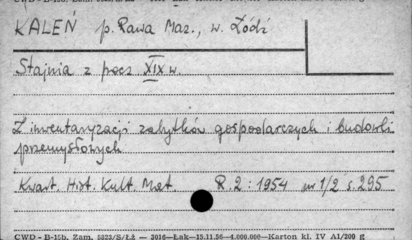 KALEŃ p. Rawa Maz., w. Łódź
Stajnia z pocz XIX w.
Z inwentaryzacji zabytków gospodarczych i budowli
przemysłowych
Kwart. Hist. Kult. Mat. R. 2 : 1954 nr 1/2 s. 295
CWD - B-15b. Zam. 5523/S/Łż — 3016—Łak—15.11.56—4.000.000—Karton kl. IV A1/200 g